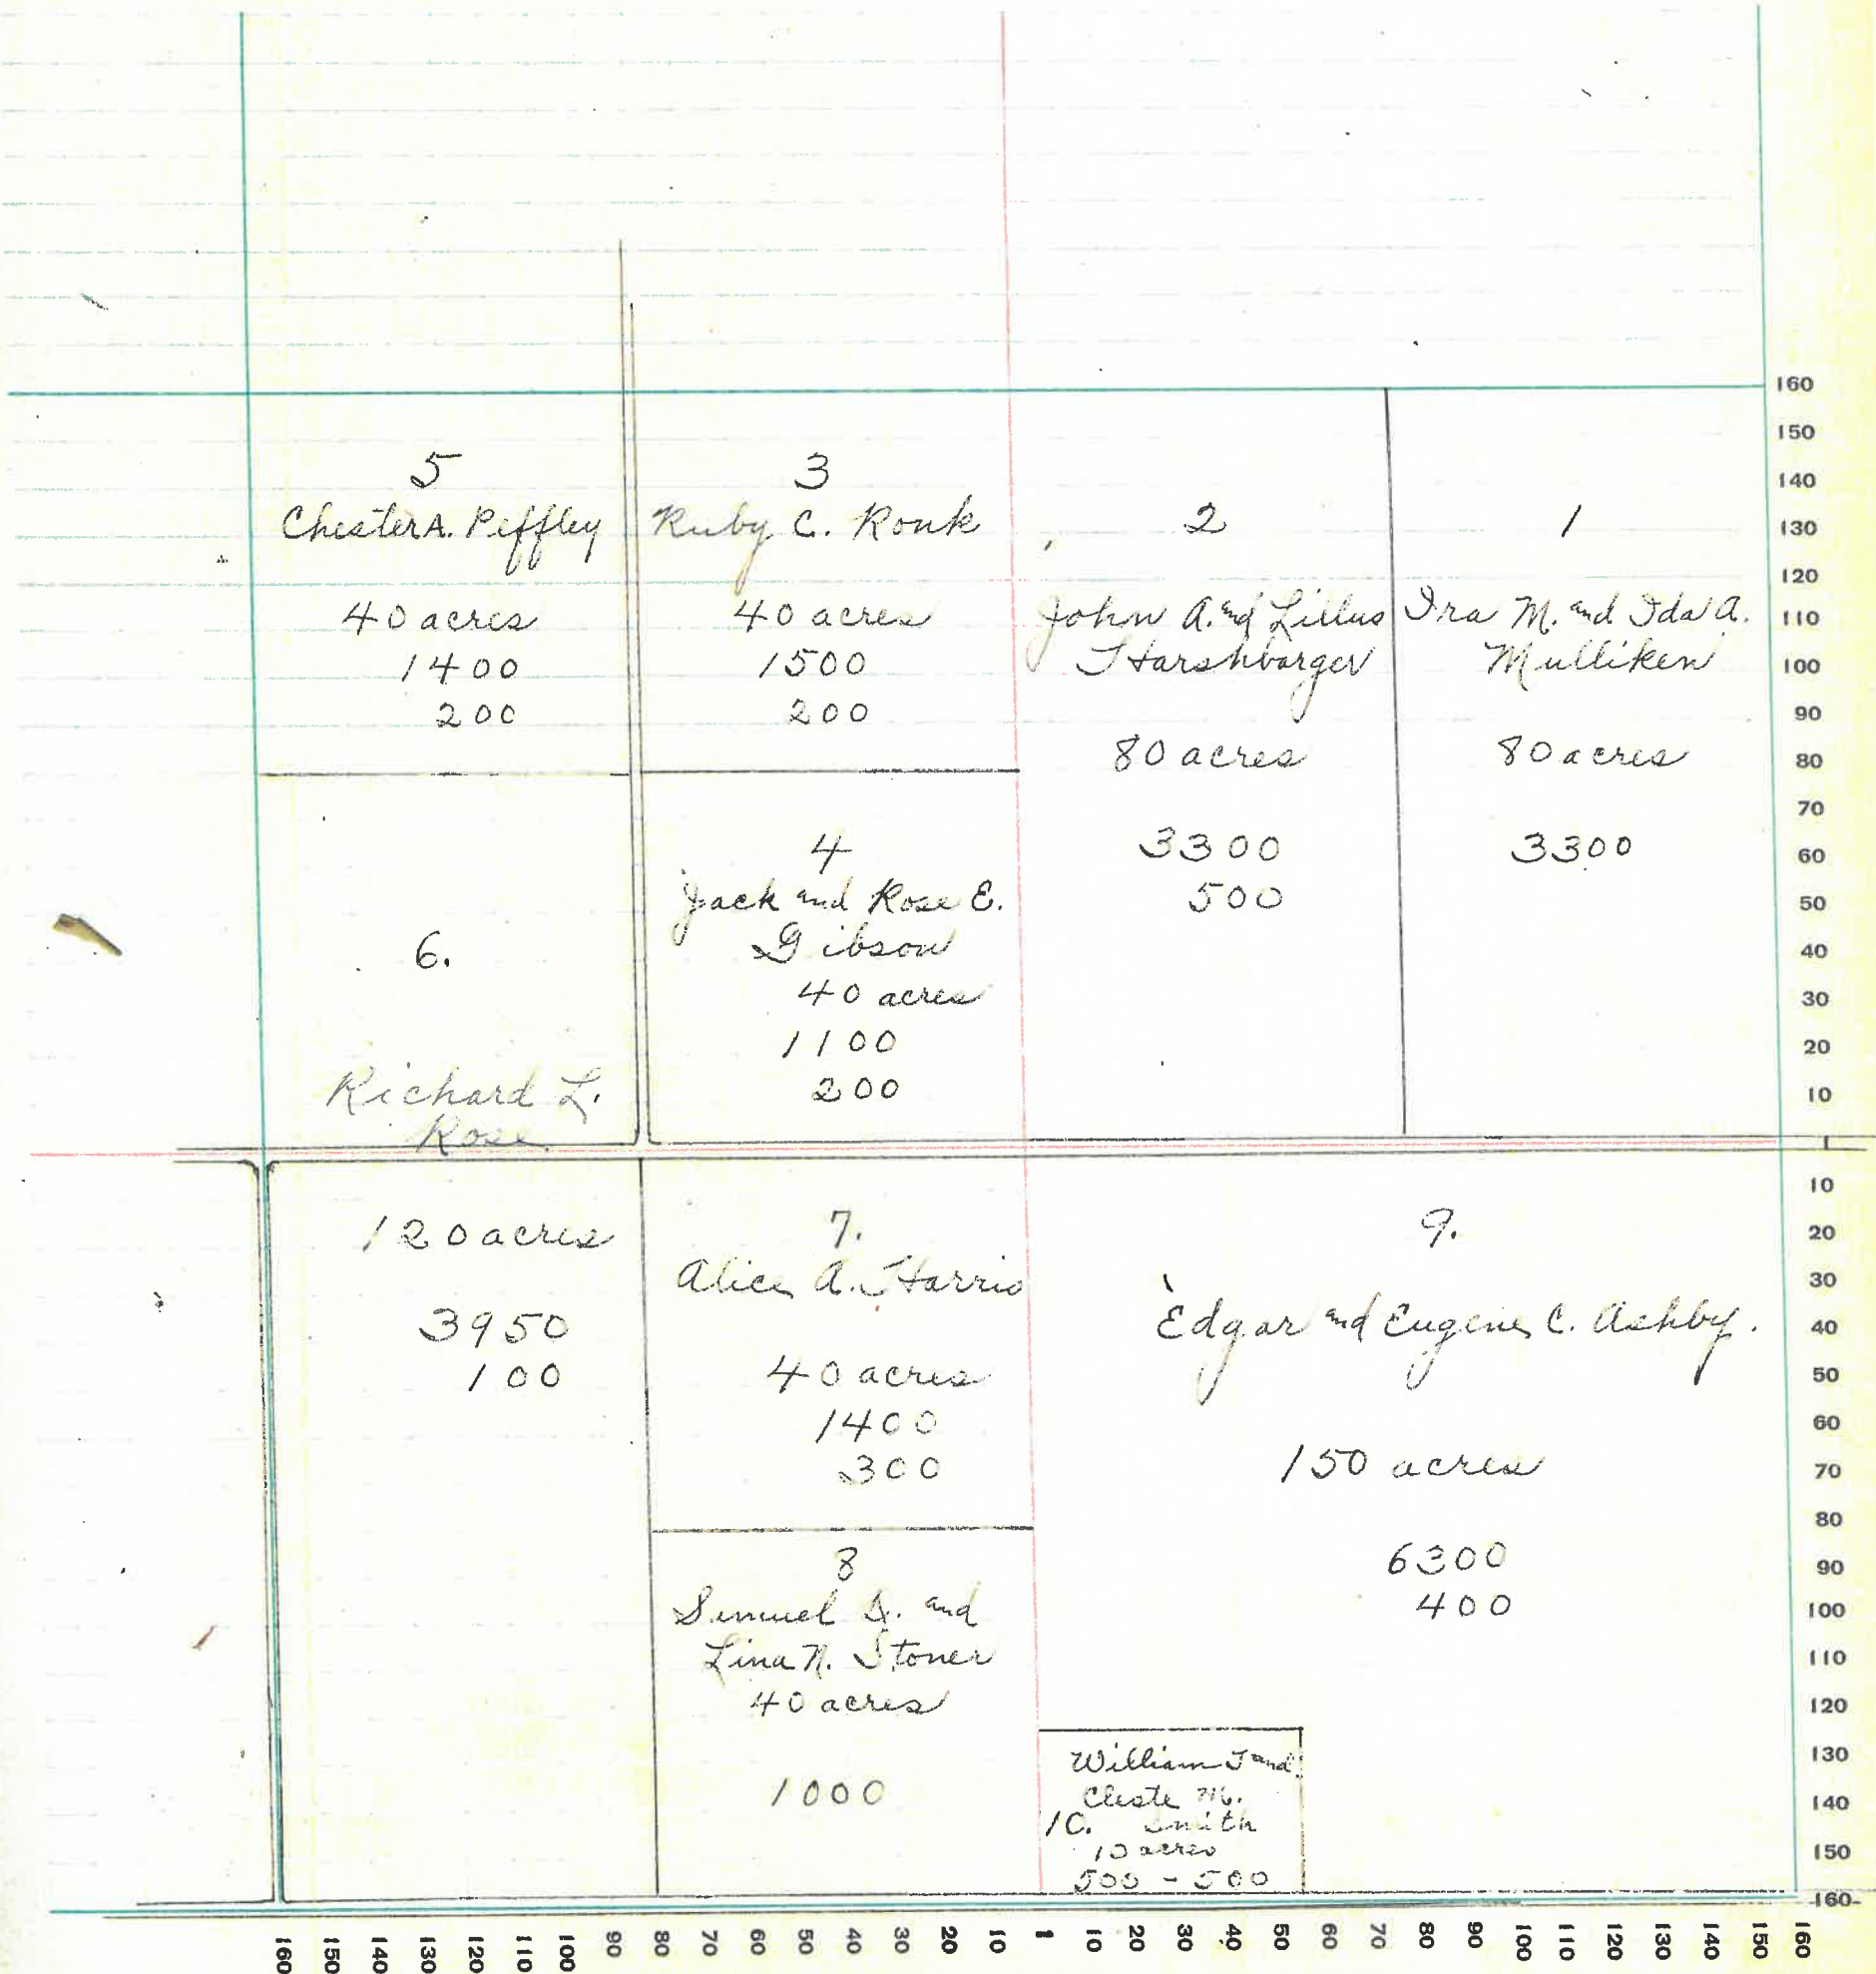 5
Chester A. Peffley
40 acres
1400
200
3
Ruby C. Ronk
40 acres
1500
200
2
John A. and Lillus
Harshbarger
80 acres
3300
500
1
Ira M. and Ida A.
Mulliken
80 acres
3300
6.
Richard L.
Rose
120 acres
3950
100
4
Jack and Rose E.
Gibson
40 acres
1100
200
7.
Alice A. Harris
40 acres
1400
300
8
Simuel D. and
Lina N. Stoner
40 acres
1000
9.
Edgar and Eugene C. Ashby.
150 acres
6300
400
William J and
Cleste M.
10. Smith
10 acres
500 - 500
160
150
140
130
120
110
100
90
80
70
60
50
40
30
20
10
1
10
20
30
40
50
60
70
80
90
100
110
120
130
140
150
160
160 150 140 130 120 110 100 90 80 70 60 50 40 30 20 10 1 10 20 30 40 50 60 70 80 90 100 110 120 130 140 150 160